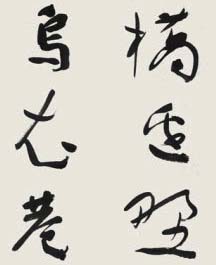 橋邊野
烏衣巷